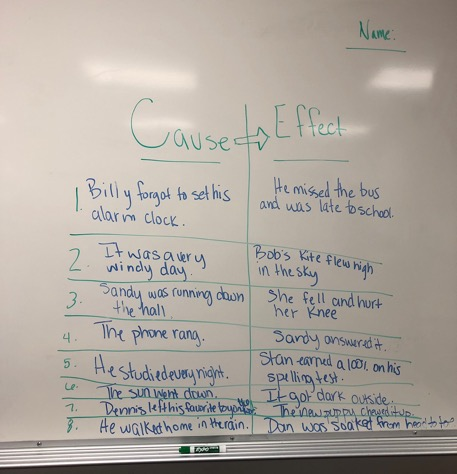 Name:
Cause ⇒ Effect
1. Billy forgot to set his
alarm clock.
He missed the bus
and was late to school.
2. It was a very
windy day.
Bob's Kite flew high
in the sky
3. Sandy was running down
the hall.
She fell and hurt
her Knee
4. The phone rang.
Sandy answered it.
5. He studied every night.
Stan earned a 100% on his
spelling test.
6. The sun went down.
It got dark outside.
7. Dennis left his favorite toy on the
The new puppy chewed it up.
8. He walked home in the rain.
Dan was soaked from head to toe
EXPO